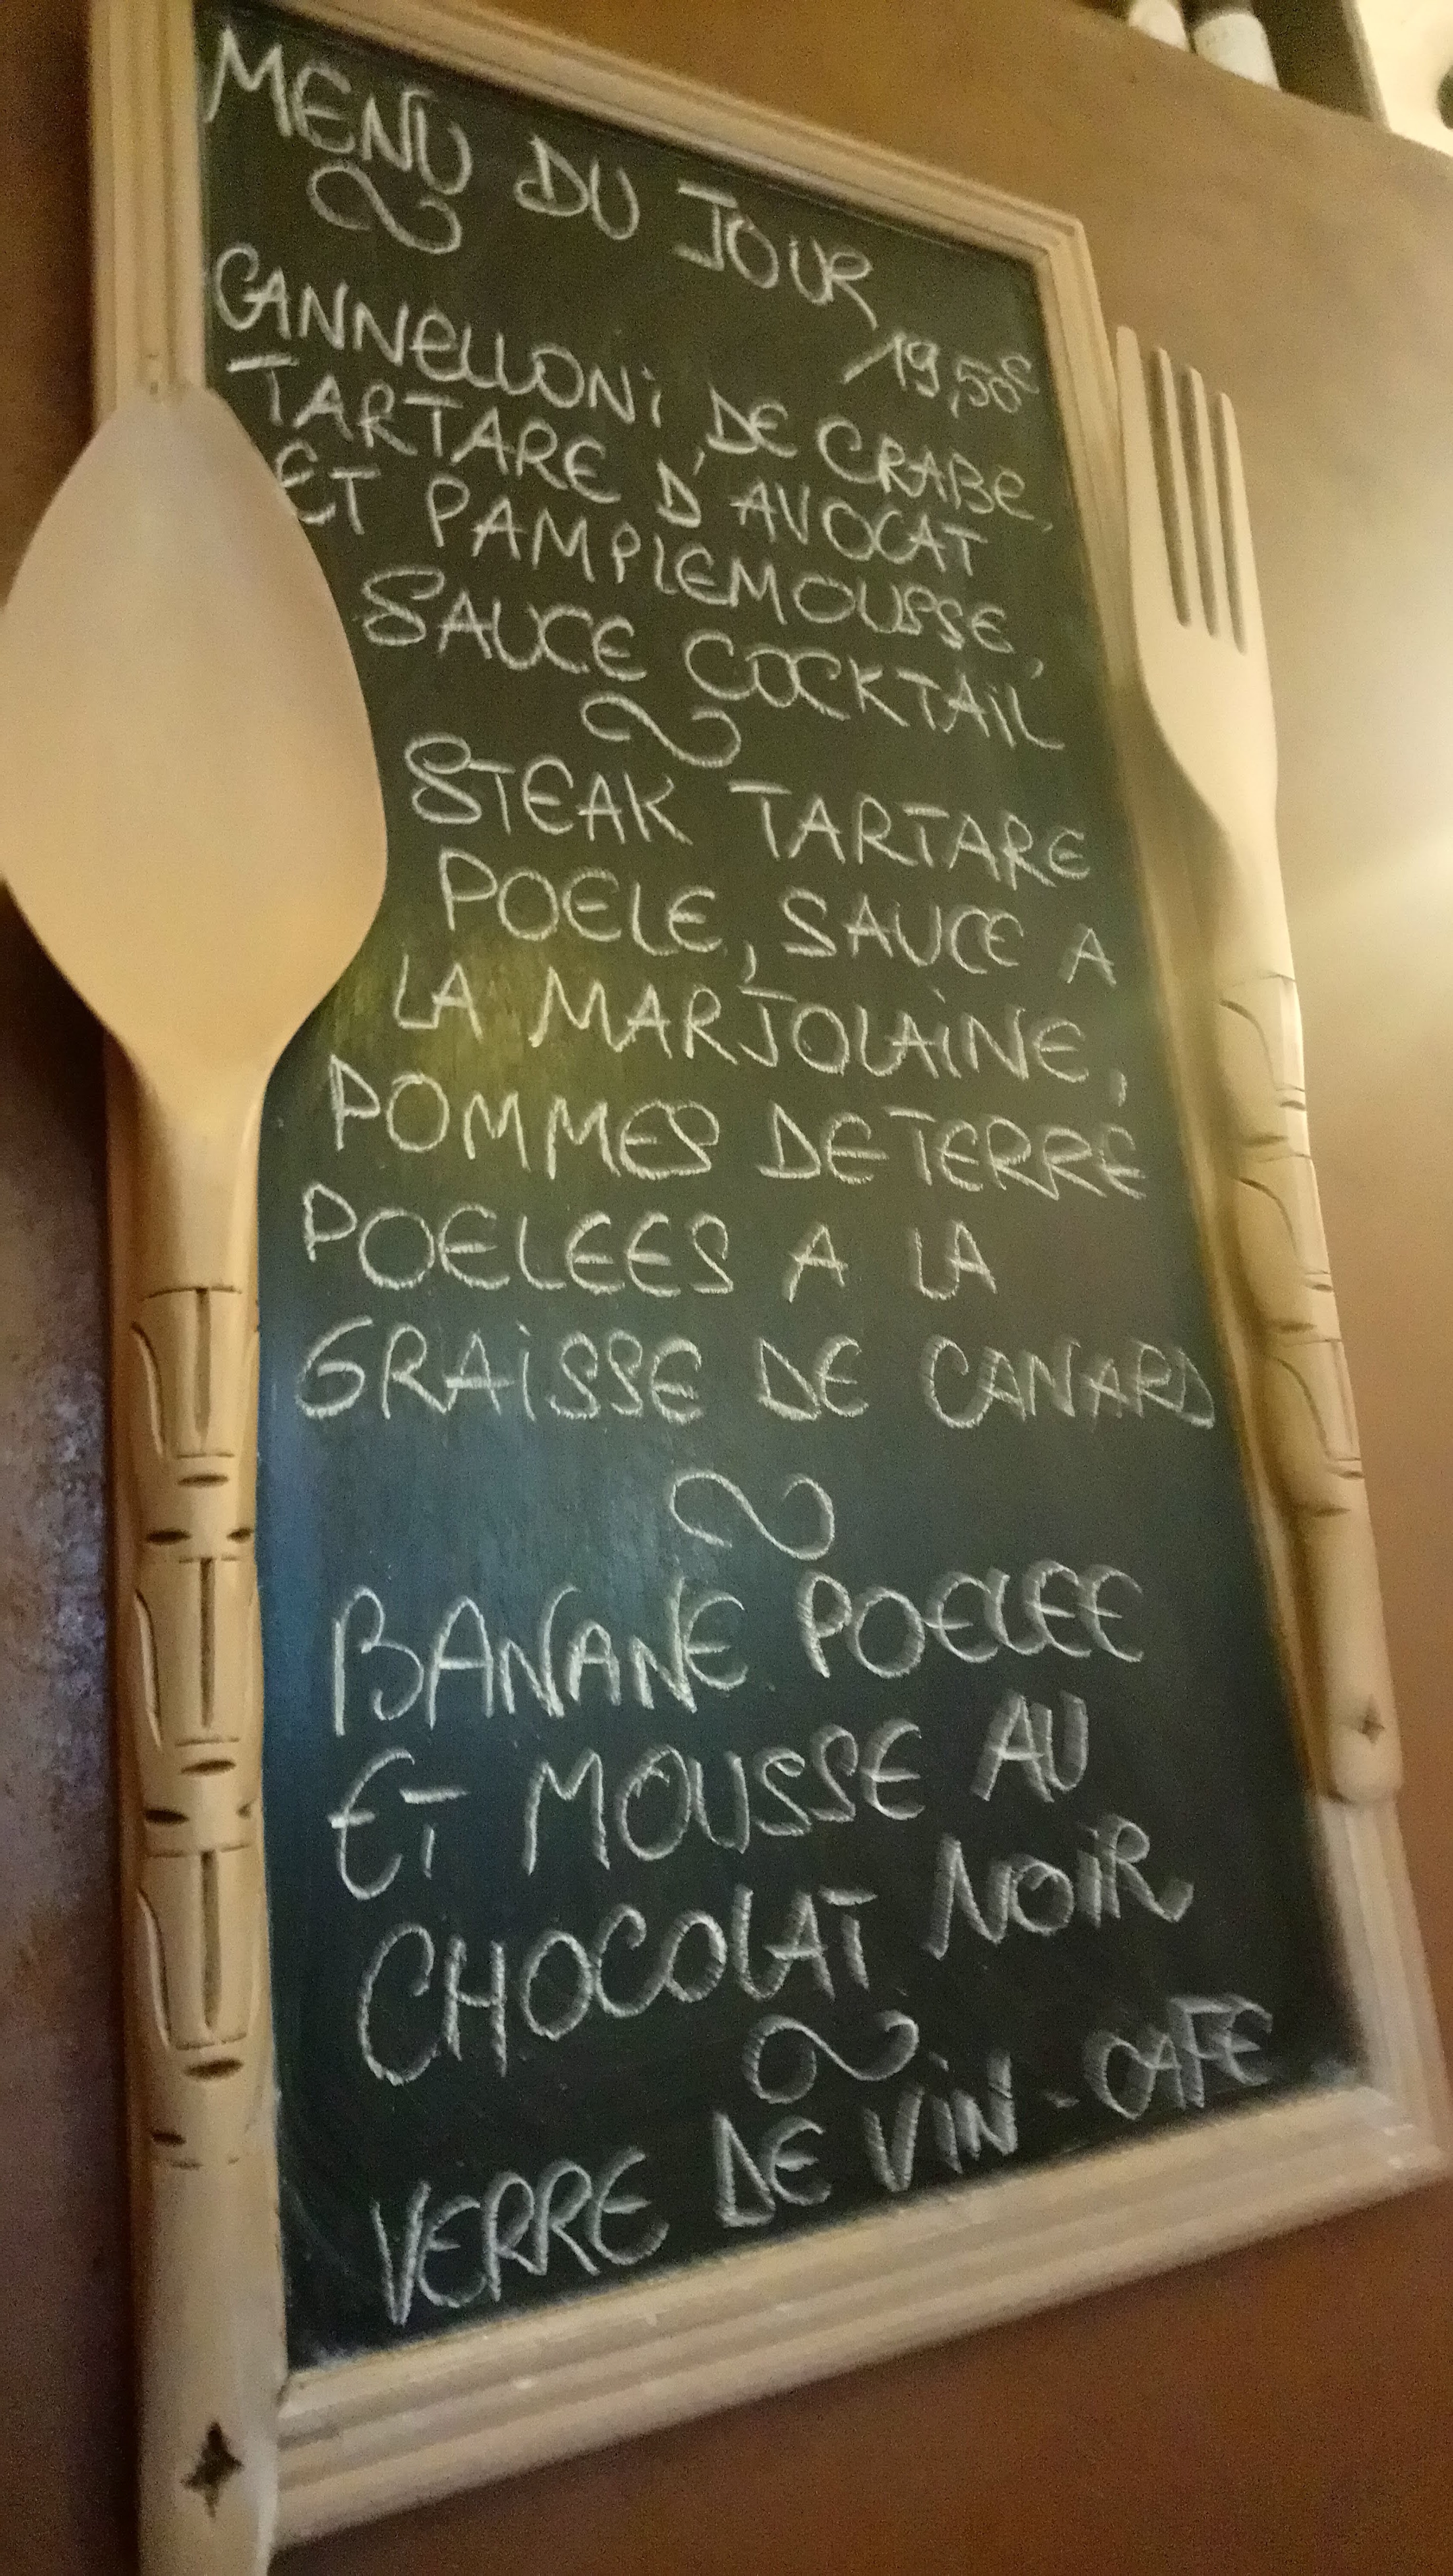 MENU DU JOUR
19,50€
CANNELLONI DE CRABE,
TARTARE D'AVOCAT
ET PAMPLEMOUSSE,
SAUCE COCKTAIL
STEAK TARTARE
POELE, SAUCE A
LA MARJOLAINE,
POMMES DE TERRE
POELEES A LA
GRAISSE DE CANARD
BANANE POELEE
ET MOUSSE AU
CHOCOLAT NOIR
VERRE DE VIN - CAFE